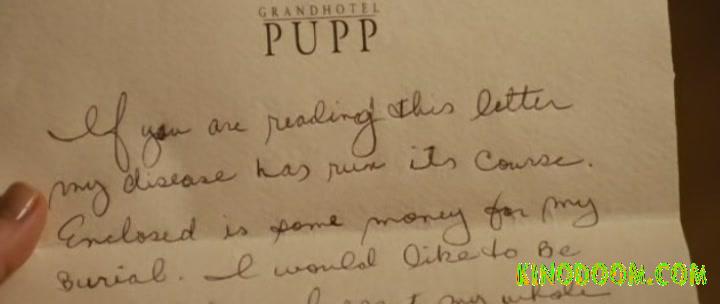 GRANDHOTEL
PUPP
If you are reading this letter
my disease has run its course.
Enclosed is some money for my
Burial. I would like to Be
my whole
KINODOOM.COM